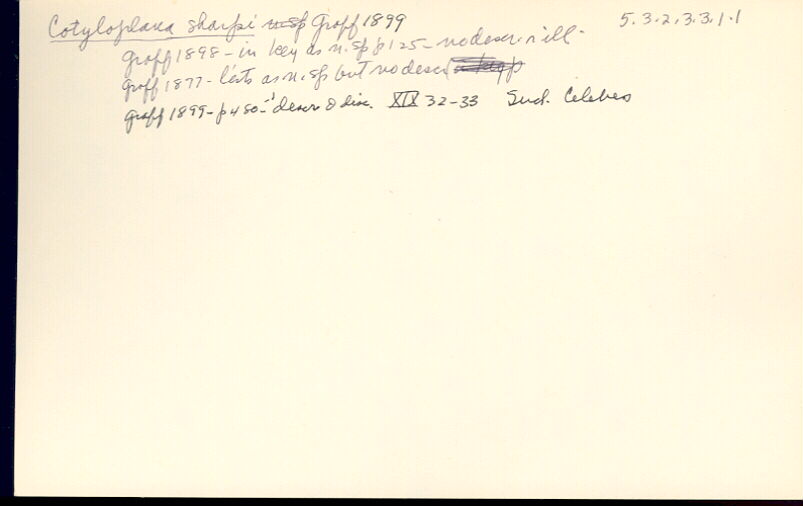 Cotyloplana sharpi n.sp Graff 1899 5.3.2.3.3.1.1
Graff 1898 - in key as n. sp p 125 - no descr. n ill.
Graff 1877 - lists as n. sp but no descr
Graff 1899 - p 480 - descr & disc. XIX 32-33 Celebes